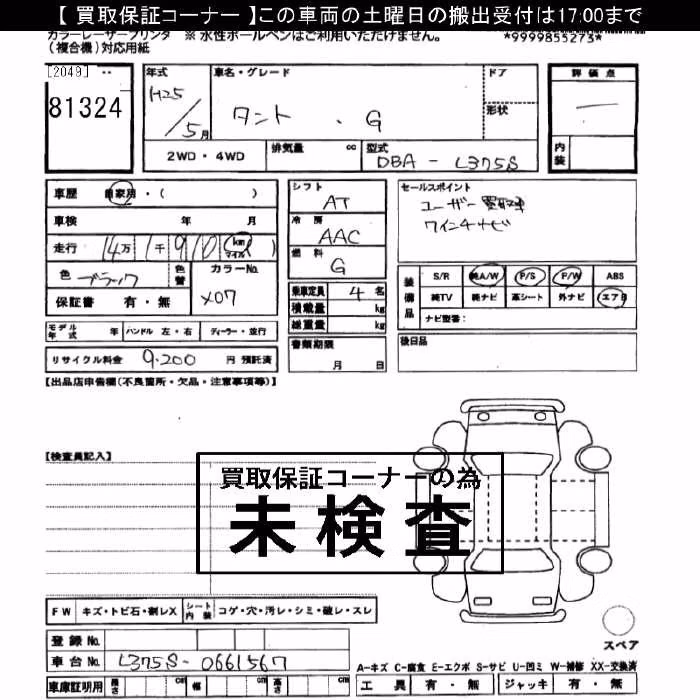 【 買取保証コーナー 】この車両の土曜日の搬出受付は17:00まで
カラーレーザープリンタ ※ 水性ボールペンはご利用いただけません。
(複合機)対応用紙
*9999855273*
[2049]
81324
年式 H25/5月
車名・グレード タント . G
ドア
形状
2WD・4WD
排気量 cc
型式 DBA - L375S
評価点 —
内装
車歴 自家用・( )
車検 年 月
走行 14万1千910 km マイル
色 ブラック
色替
カラーNo. X07
保証書 有・無
シフト AT
冷房 AAC
燃料 G
乗車定員 4名
積載量 kg
総重量 kg
書類期限 月 日
セールスポイント
ユーザー買取車
7インチナビ
装備品
S/R 純A/W P/S P/W ABS
純TV 純ナビ 革シート 外ナビ エアB
ナビ型番:
モデル年式 年 ハンドル 左・右 ディーラー・並行
リサイクル料金 9.200 円 預託済
後日品
【出品店申告欄(不良箇所・欠品・注意事項等)】
【検査員記入】
買取保証コーナーの為
未検査
FW キズ・トビ石・割レX シート内装 コゲ・穴・汚レ・シミ・破レ・スレ
登録No.
車台No. L375S-0661567
車庫証明用 長さ cm 幅 cm 高さ cm
スペア
A-キズ C-腐食 E-エクボ S-サビ U-凹ミ W-補修 XX-交換済
工具 有・無 ジャッキ 有・無